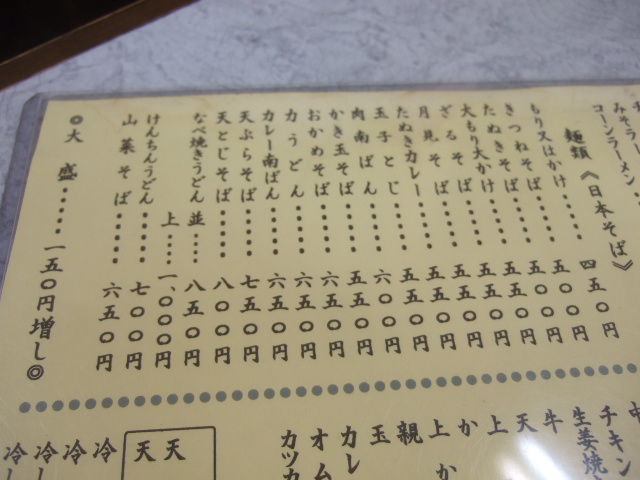 みそラーメン
コーンラーメン
麺類《日本そば》
もり又はかけ……四五〇円
きつねそば……五〇〇円
たぬきそば……五〇〇円
大もり大かけ……五五〇円
ざるそば……五五〇円
月見そば……五五〇円
たぬきカレー……五五〇円
玉子とじ……五五〇円
肉南ばん……六〇〇円
かき玉そば……五五〇円
おかめそば……六五〇円
力うどん……六五〇円
カレー南ばん……六五〇円
天ぷらそば……七五〇円
天とじそば……八〇〇円
なべ焼きうどん 並……八五〇円
上……一、〇〇〇円
けんちんうどん……七〇〇円
山菜そば……六五〇円
◎大盛……一五〇円増し◎
チキン
生姜焼
牛
天
上
か
上か
親
玉
カレ
オム
カツカ
天
天
冷
冷
冷し
冷し